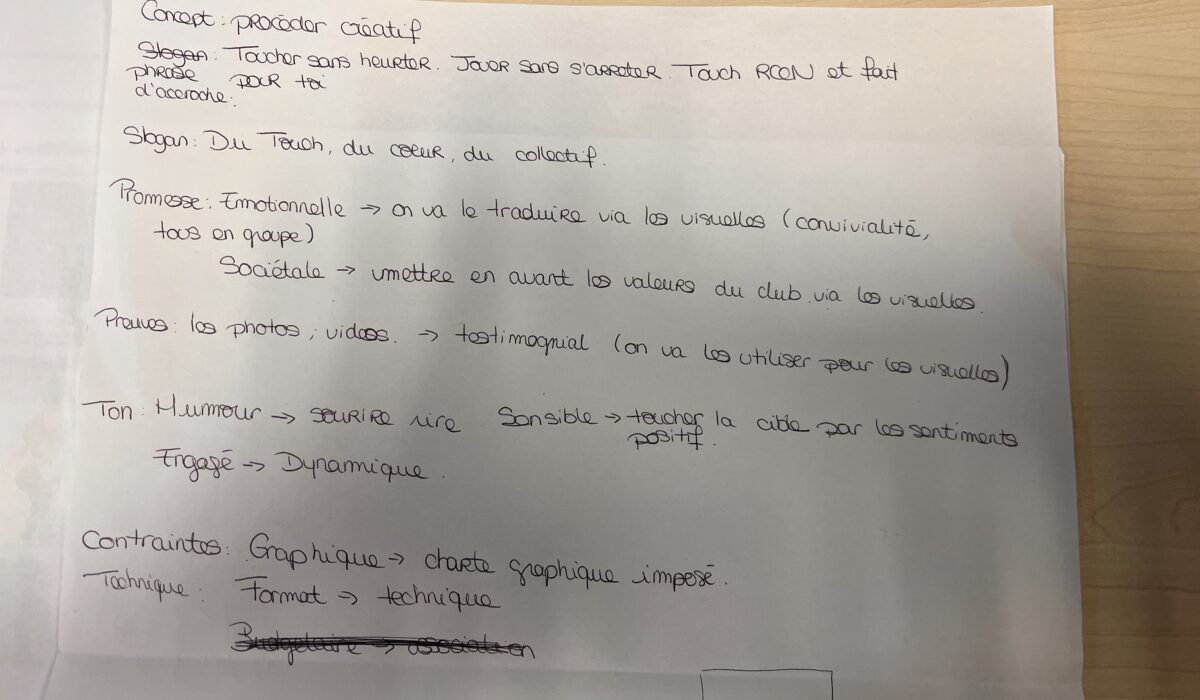 Concept : procéder créatif
Slogan : Toucher sans heurter. Jouer sans s'arreter. Touch RCGN et fait
phrase pour toi
d'accroche :
Slogan : Du Touch, du coeur, du collectif.
Promesse : Emotionnelle → on va le traduire via les visuelles (convivialité,
tous en groupe)
Sociétale → mettre en avant les valeurs du club via les visuelles.
Preuves : les photos, videos. → testimognial (on va les utiliser pour les visuelles)
Ton : Humour → sourire rire Sensible → toucher la cible par les sentiments
positif.
Engagé → Dynamique.
Contraintes : Graphique → charte graphique imposé.
Technique : Format → technique
Budgetaire → association